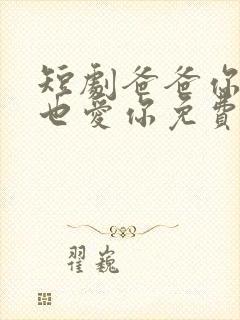 短劇爸爸你
也愛你免費
翟巍